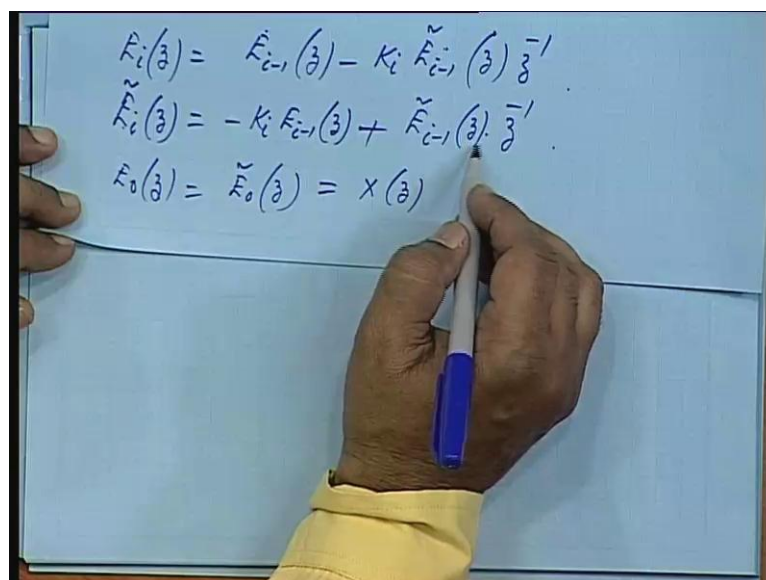 E_i(z) = E_{i-1}(z) - K_i Ẽ_{i-1}(z) z^{-1}
Ẽ_i(z) = - K_i E_{i-1}(z) + Ẽ_{i-1}(z). z^{-1}
E_0(z) = Ẽ_0(z) = X(z)